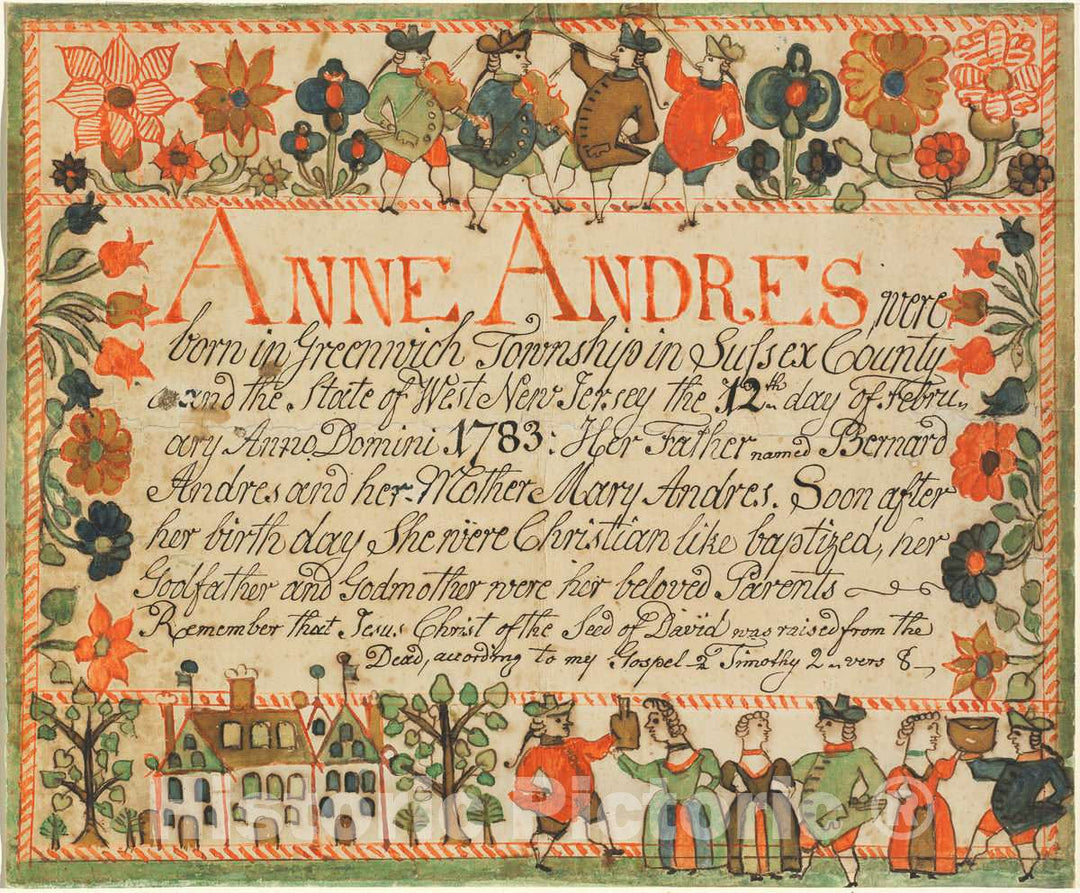 ANNE ANDRES were
born in Greenwich Township in Sussex County
and the State of West New Jersey the 12th day of Febru„
ary Anno Domini 1783: Her Father named Bernard
Andres and her Mother Mary Andres. Soon after
her birth day She were Christian like baptized, her
Godfather and Godmother were her beloved Parents
Remember that Jesus Christ of the Seed of David was raised from the
Dead, according to my Gospel 2 Timothy 2 vers 8
Historic Pictoric ©